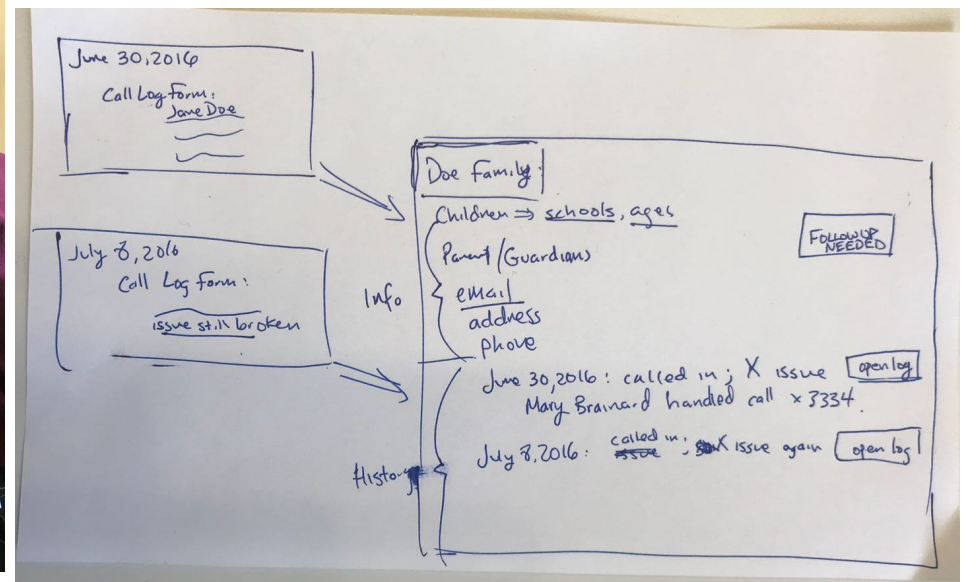 June 30, 2016
Call Log Form:
Jane Doe
July 8, 2016
Call Log Form:
issue still broken
Doe Family:
Children ⇒ schools, ages
FOLLOW UP
NEEDED
Parent/Guardians
Info
email
address
phone
June 30, 2016: called in; X issue open log
Mary Brainard handled call x3334.
July 8, 2016: called in; X issue again open log
History